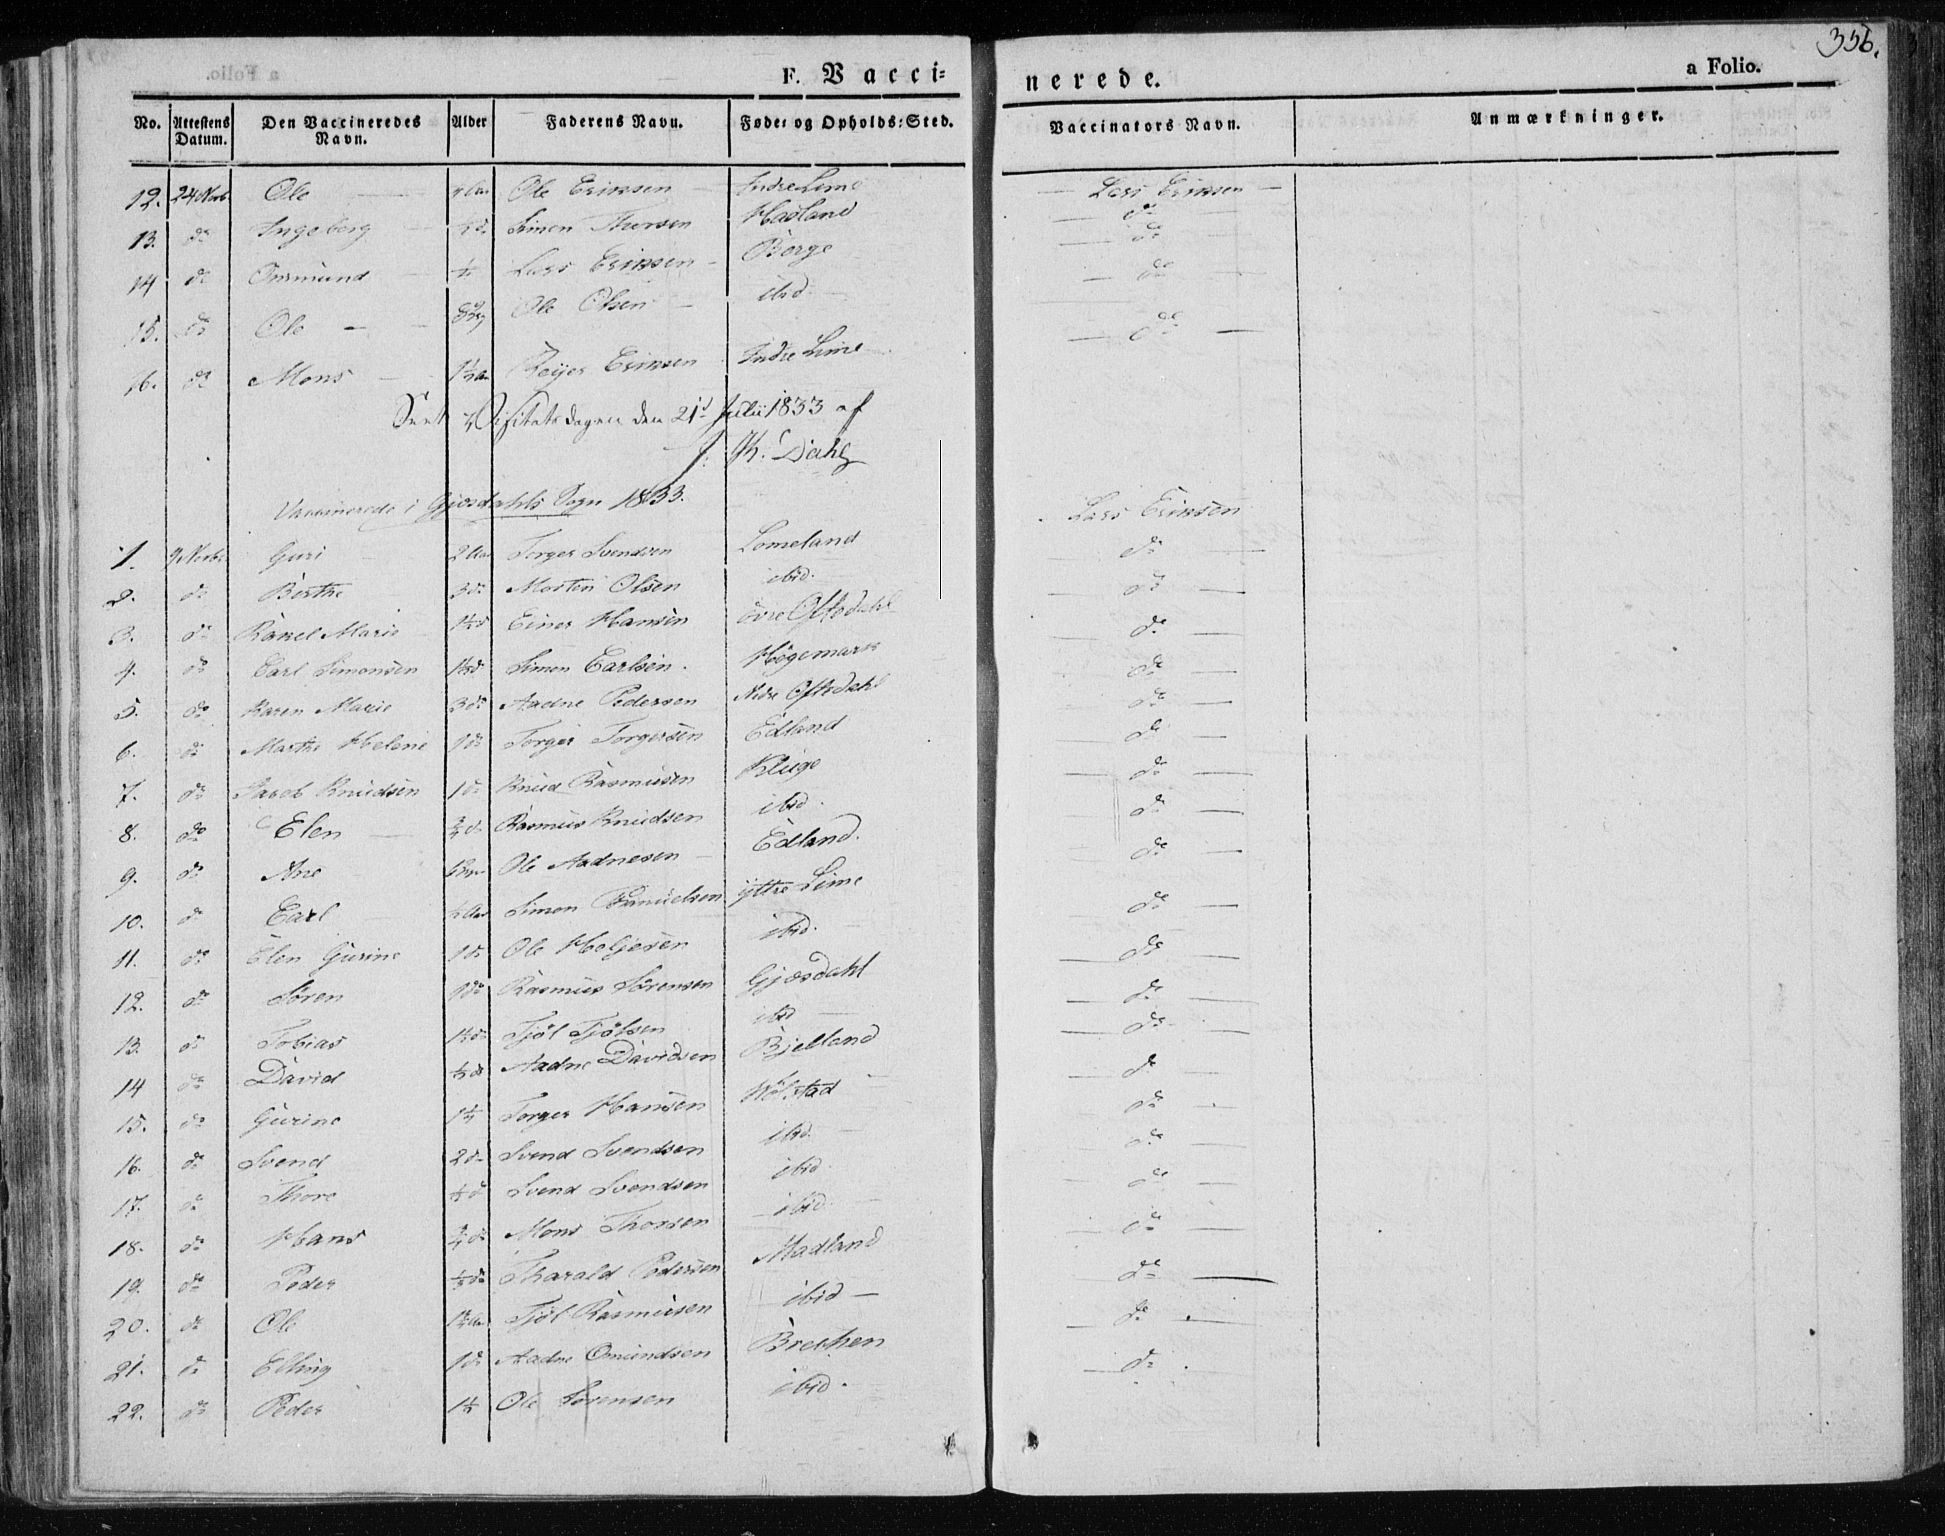 356.
a Folio.
F. Vacci=
nerede.
No. Attestens Datum. Den Vaccineredes Navn. Alder Faderens Navn. Føde= og Opholds=Sted. Vaccinators Navn. Anmærkninger.
12. 24 Novb. Ole Ole Ericsen Indre Lime Lars Ericsen
13. do Ingeborg Simon Madland do
14 do Lars Ericsen Borge do
15. do Ole Ole Olsen ibid. do
16. do Mons Reijer Ericsen Indre Lime do
Seet Visitatsdagen den 21d Julii 1833 af
Dahl
Vaccinerede i Gjesdahls Sogn 1833.
1. Guri 2 Torger Svendsen Lomeland Lars Ericsen
2. do Berthe 3 do Morten Olsen ibid. do
3. do Rakel Marie 1½ d Einer Hansen övre Oftedahl do
4. do Carl Simonsen Simon Carlsen. Högemark do
5. do Karen Marie 3 do Aadne Pedersen Nedre Oftedahl do
6. do Marthe Helene 1 do Torger Torgersen Edland do
7. do Jacob Knudsen 1 do Knud Rasmusen Kluge do
8. do Elen ¾ d Rasmus Knudsen ibid. do
9. do Ane Ole Aadnesen Edland. do
10. do Carl Simon Samuelsen yttre Lime do
11. do Elen Gurine 1 do Ole Helgesen ibid. do
12. do Sören 1 do Rasmus Sörensen Gjesdahl do
13. do Tobias 1½ do Tjöl Tjölsen ibid do
14 do David ½ do Aadne Davidsen Bjelland do
15. do Gurine 1½ Torger Hansen do
16. do Svend 2 d Svend Svendsen ibid. do
17. do Thore ½ d Svend Svendsen ibid. do
18. do Hans ¾ do Mons Thorsen ibid. do
19. do Peder ½ do Tharald Pedersen Madland do
20. do Ole Tjöl Rasmusen ibid do
21. do Elling 1 do Aadne Omundsen Brekken do
22. do Peder 1½ Ole Sörensen ibid. do